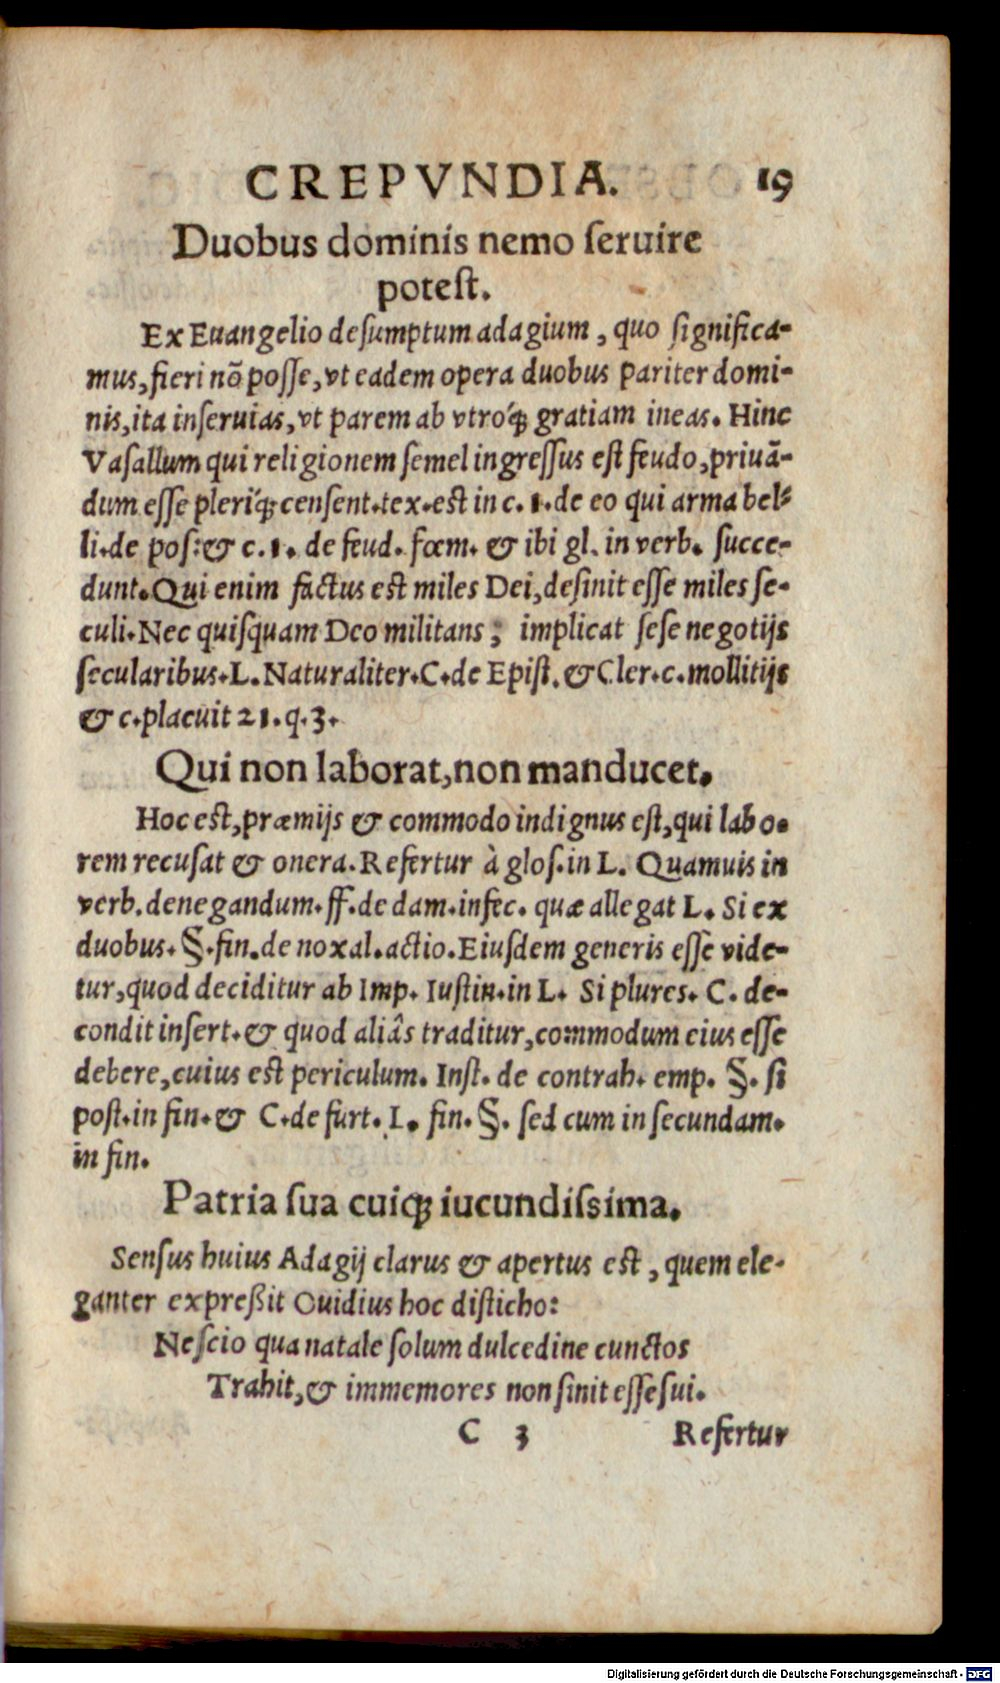 CREPVNDIA. 19
Duobus dominis nemo seruire
potest.
Ex Euangelio desumptum adagium, quo significa-
mus, fieri nõ posse, vt eadem opera duobus pariter domi-
nis, ita inseruias, vt parem ab vtróq; gratiam ineas. Hinc
Vasallum qui religionem semel ingressus est feudo, priuã-
dum esse pleríq; censent. tex. est in c. 1. de eo qui arma bel-
li. de pos: & c. 1. de feud. fœm. & ibi gl. in verb. succe-
dunt. Qui enim factus est miles Dei, desinit esse miles se-
culi. Nec quisquam Deo militans; implicat sese negotijs
secularibus. L. Naturaliter. C. de Epist. & Cler. c. mollitijs
& c. placuit 21. q. 3.
Qui non laborat, non manducet.
Hoc est, præmijs & commodo indignus est, qui labo-
rem recusat & onera. Refertur à glos. in L. Quamuis in
verb. denegandum. ff. de dam. infec. quæ allegat L. Si ex
duobus. §. fin. de noxal. actio. Eiusdem generis esse vide-
tur, quod deciditur ab Imp. Iustin. in L. Si plures. C. de-
condit insert. & quod aliâs traditur, commodum eius esse
debere, cuius est periculum. Inst. de contrah. emp. §. si
post. in fin. & C. de furt. L. fin. §. sed cum in secundam.
in fin.
Patria sua cuiq; iucundissima.
Sensus huius Adagij clarus & apertus est, quem ele-
ganter expreßit Ouidius hoc disticho:
Nescio qua natale solum dulcedine cunctos
Trahit, & immemores non sinit esse sui.
C 3 Refertur
Digitalisierung gefördert durch die Deutsche Forschungsgemeinschaft - DFG